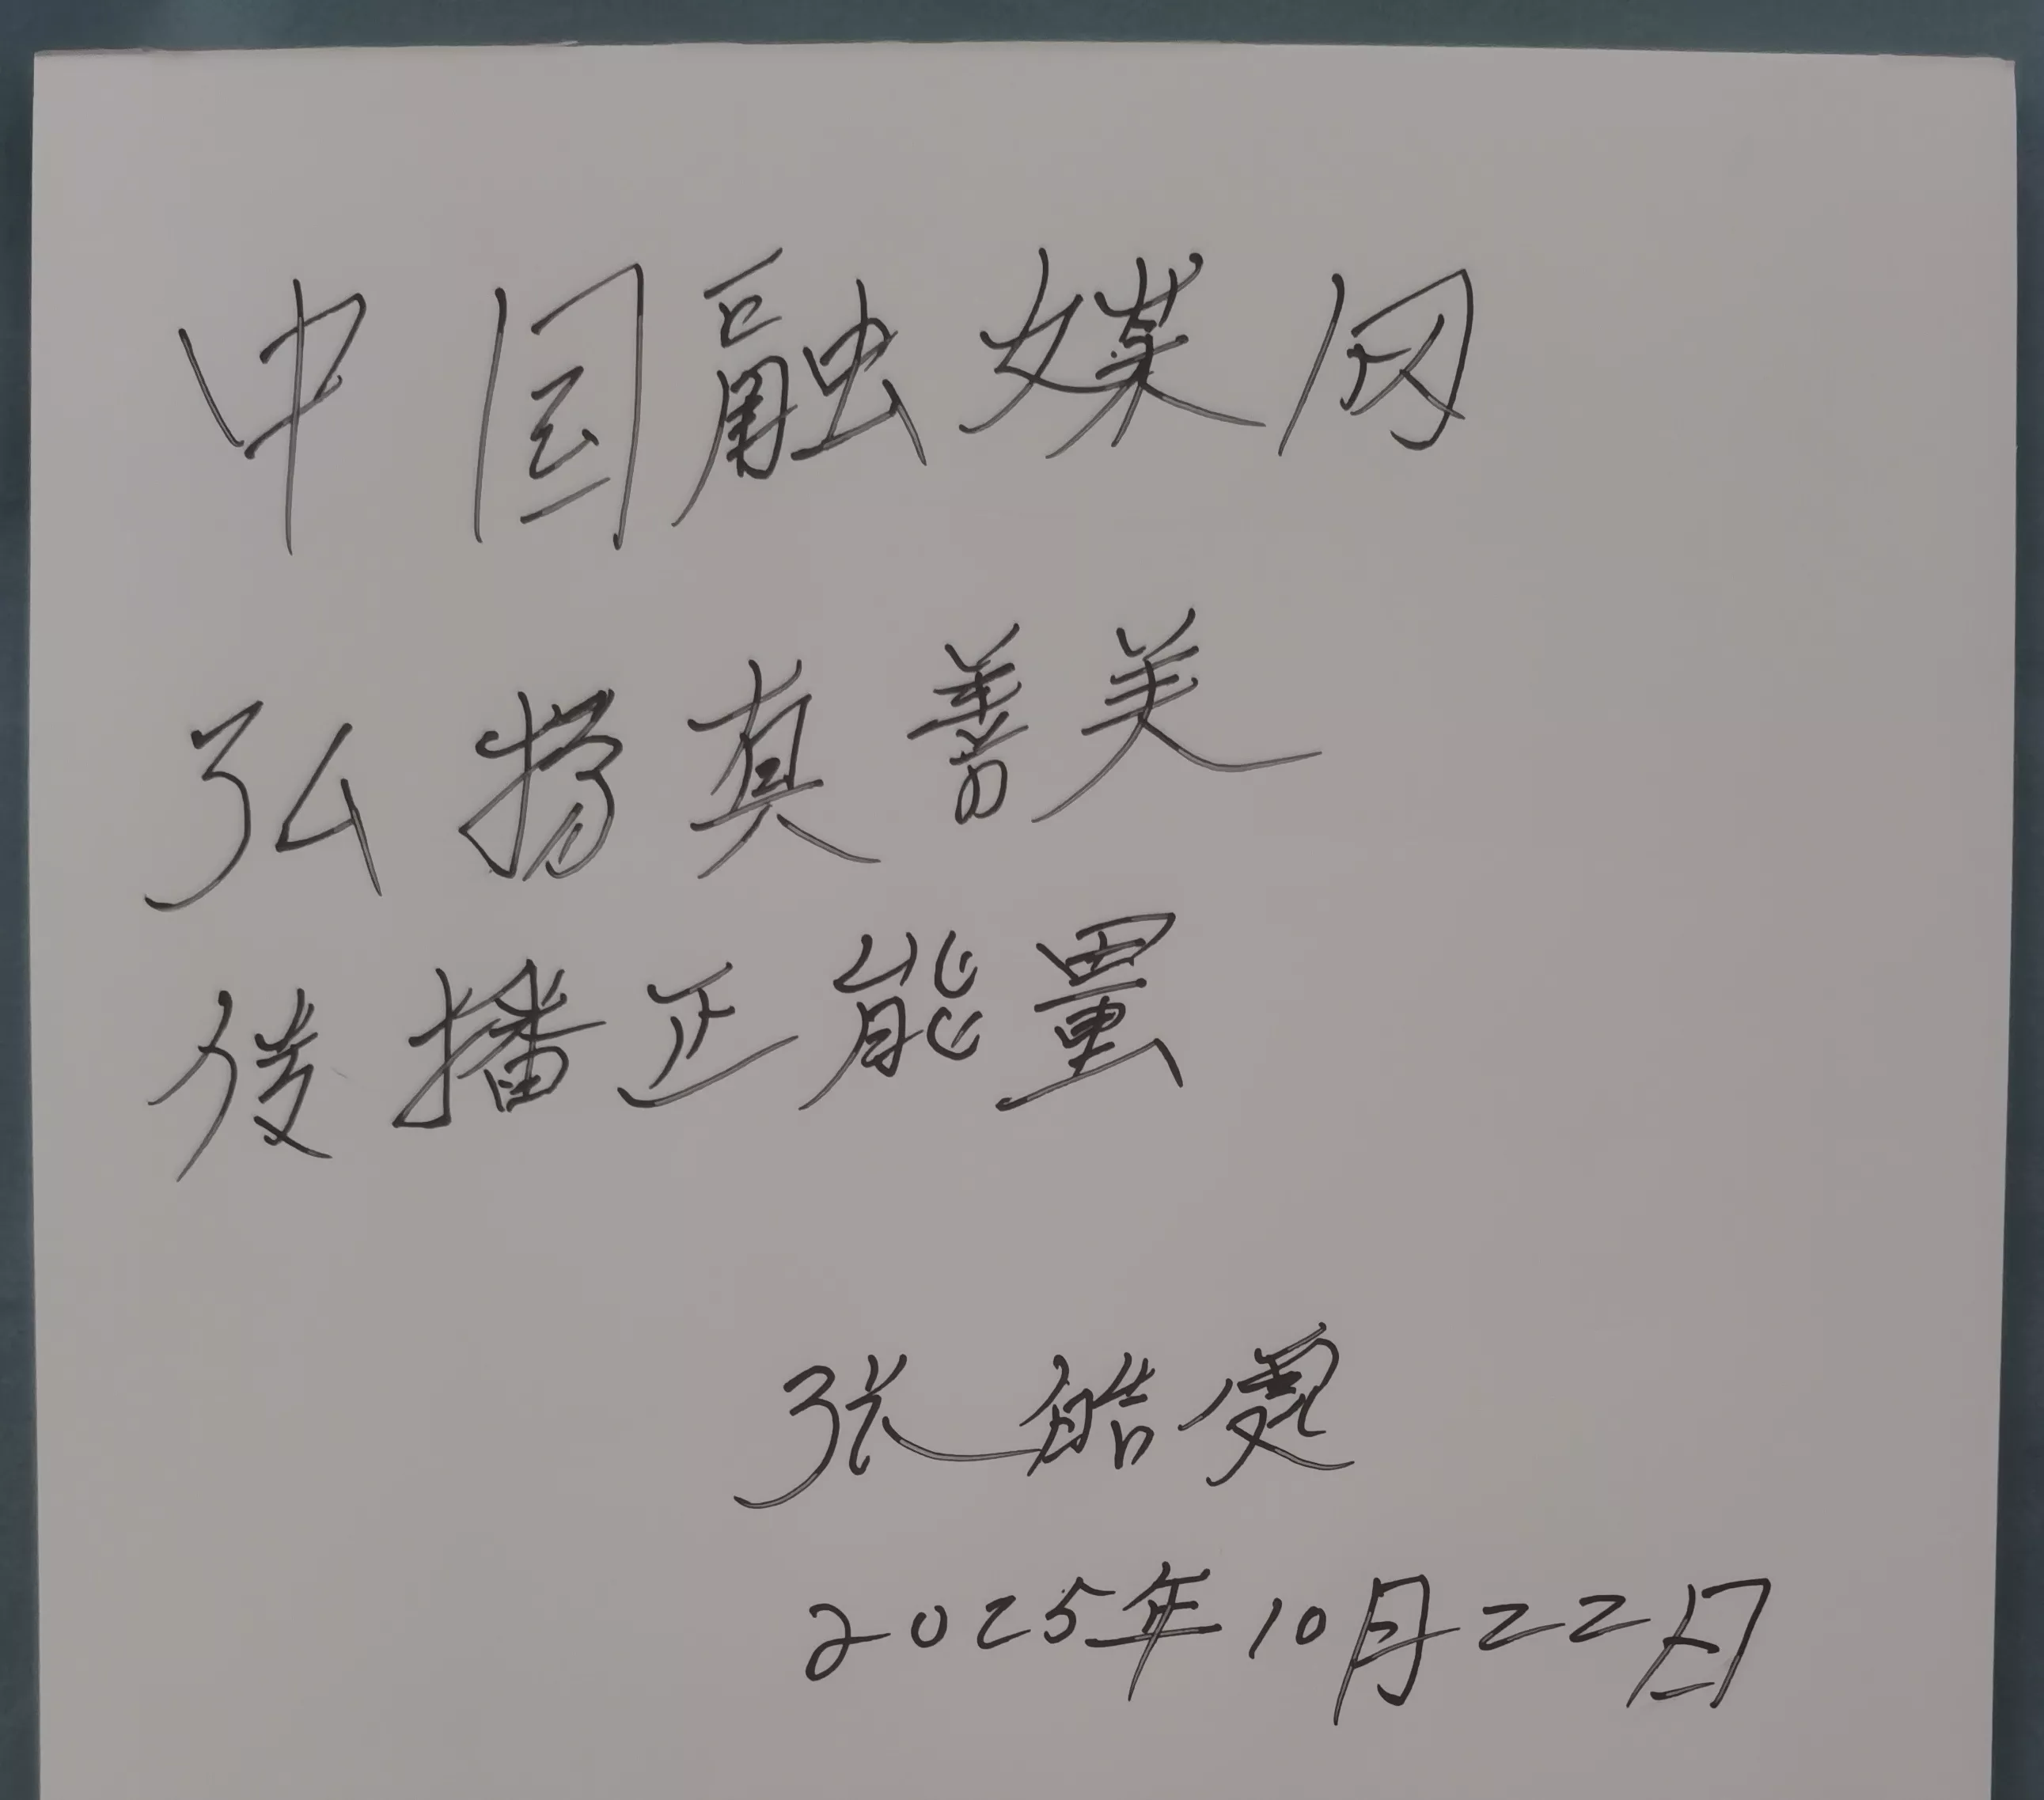 中国融媒网
弘扬真善美
传播正能量
张皓宸
2025年10月22日